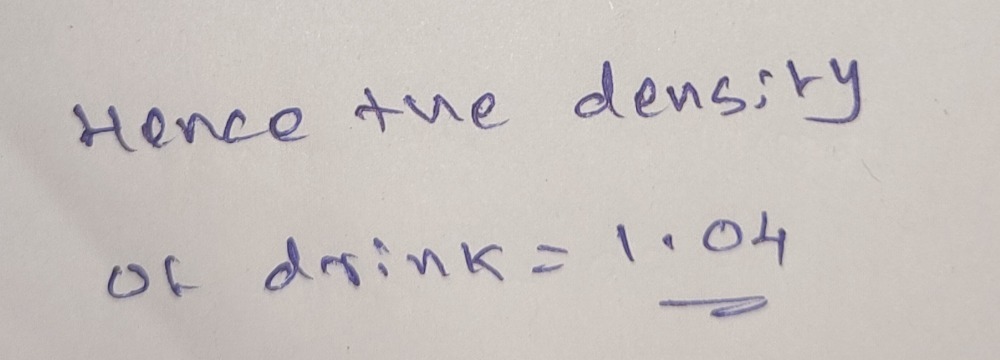 Hence the density
of drink = 1.04